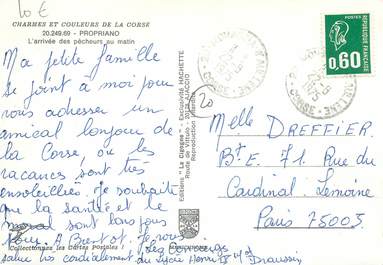 10 €
CHARMES ET COULEURS DE LA CORSE
20.249.69 - PROPRIANO
L'arrivée des pêcheurs au matin
Ma petite famille
se joint à moi pour
vous adresser un
amical bonjour de
la Corse, où les
vacances sont très
ensoleillées. Je souhaite
que la santé et le
moral sont bons pour
tous. A Bientôt. Je vous
salue très cordialement
Collectionnez les Cartes Postales !
du lycée Henri IV
Draussin
Editions "La Cigogne" - Exclusivité HACHETTE
Route de Vittulo - 20 - AJACCIO
Reproduction
20
0,60
Melle DREFFIER
Bt E. 71 Rue du
Cardinal Lemoine
Paris 75005